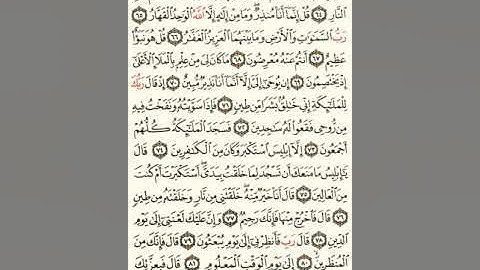 ٱلنَّارِ ٦٤ قُلْ إِنَّمَآ أَنَا۠ مُنذِرٌ وَمَا مِنْ إِلَٰهٍ إِلَّا ٱللَّهُ ٱلْوَٰحِدُ ٱلْقَهَّارُ ٦٥
رَبُّ ٱلسَّمَٰوَٰتِ وَٱلْأَرْضِ وَمَا بَيْنَهُمَا ٱلْعَزِيزُ ٱلْغَفَّٰرُ ٦٦ قُلْ هُوَ نَبَؤٌا۟
عَظِيمٌ ٦٧ أَنتُمْ عَنْهُ مُعْرِضُونَ ٦٨ مَا كَانَ لِىَ مِنْ عِلْمٍۭ بِٱلْمَلَإِ ٱلْأَعْلَىٰٓ
إِذْ يَخْتَصِمُونَ ٦٩ إِن يُوحَىٰٓ إِلَىَّ إِلَّآ أَنَّمَآ أَنَا۠ نَذِيرٌ مُّبِينٌ ٧٠ إِذْ قَالَ رَبُّكَ
لِلْمَلَٰٓئِكَةِ إِنِّى خَٰلِقٌۢ بَشَرًا مِّن طِينٍ ٧١ فَإِذَا سَوَّيْتُهُۥ وَنَفَخْتُ فِيهِ
مِن رُّوحِى فَقَعُوا۟ لَهُۥ سَٰجِدِينَ ٧٢ فَسَجَدَ ٱلْمَلَٰٓئِكَةُ كُلُّهُمْ
أَجْمَعُونَ ٧٣ إِلَّآ إِبْلِيسَ ٱسْتَكْبَرَ وَكَانَ مِنَ ٱلْكَٰفِرِينَ ٧٤ قَالَ
يَٰٓإِبْلِيسُ مَا مَنَعَكَ أَن تَسْجُدَ لِمَا خَلَقْتُ بِيَدَىَّ أَسْتَكْبَرْتَ أَمْ كُنتَ
مِنَ ٱلْعَالِينَ ٧٥ قَالَ أَنَا۠ خَيْرٌ مِّنْهُ خَلَقْتَنِى مِن نَّارٍ وَخَلَقْتَهُۥ مِن طِينٍ
٧٦ قَالَ فَٱخْرُجْ مِنْهَا فَإِنَّكَ رَجِيمٌ ٧٧ وَإِنَّ عَلَيْكَ لَعْنَتِىٓ إِلَىٰ يَوْمِ
ٱلدِّينِ ٧٨ قَالَ رَبِّ فَأَنظِرْنِىٓ إِلَىٰ يَوْمِ يُبْعَثُونَ ٧٩ قَالَ فَإِنَّكَ مِنَ
ٱلْمُنظَرِينَ ٨٠ إِلَىٰ يَوْمِ ٱلْوَقْتِ ٱلْمَعْلُومِ ٨١ قَالَ فَبِعِزَّتِكَ